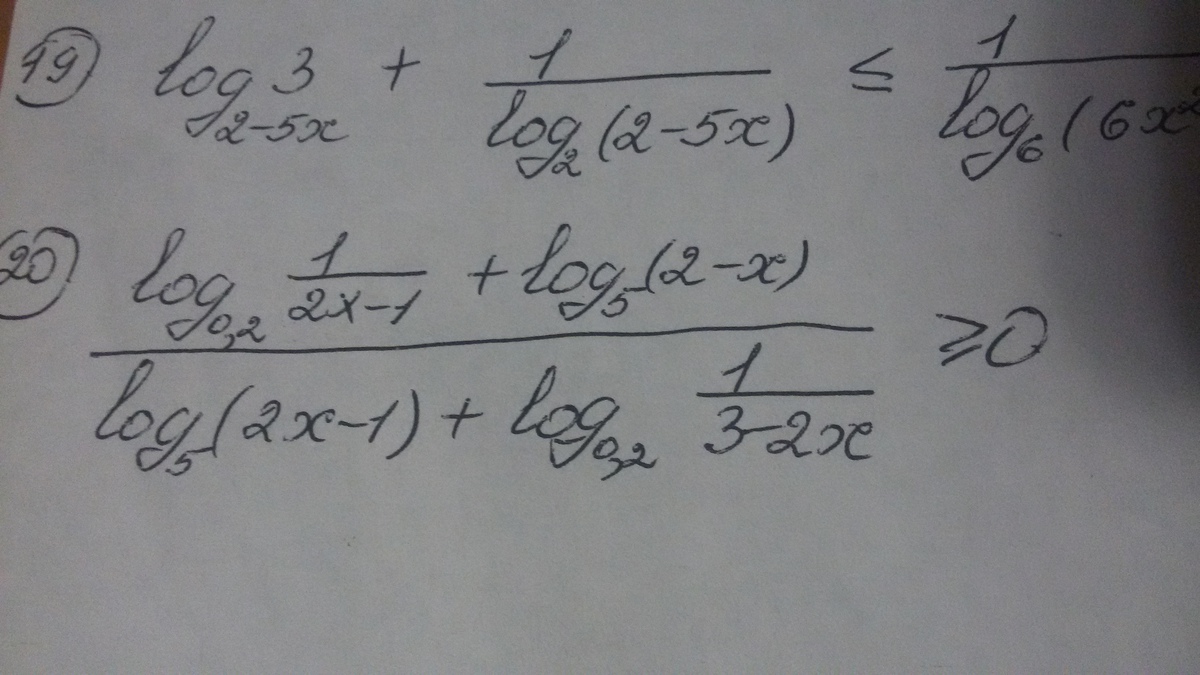 19 log_{2-5x} 3 + 1/log_2 (2-5x) ≤ 1/log_6 (6x²
20 (log_{0,2} 1/(2x-1) + log_5 (2-x)) / (log_5 (2x-1) + log_{0,2} 1/(3-2x)) ≥ 0